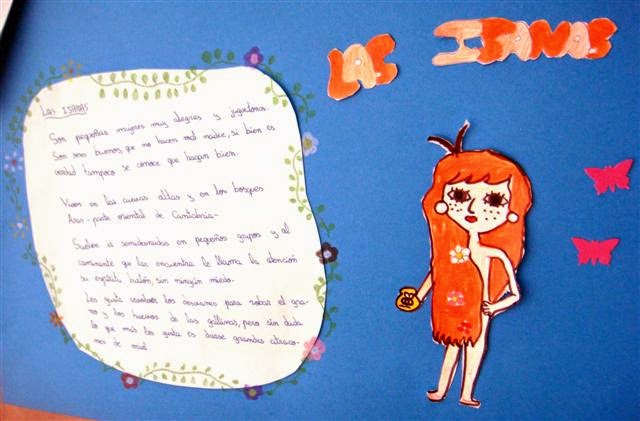 LAS ISANAS
Las ISANAS
Son pequeñas mujeres muy alegres y juguetonas.
Son seres buenos, que no hacen mal nadie, si bien es
verdad tampoco se conoce que hagan bien.
Viven en las cuevas altas y en los bosques
Aras - parte oriental de Cantabria -
Suelen ir semidesnudas en pequeños grupos y al
caminante que las encuentra le llama la atención
su espíritu burlón, sin ningún miedo.
Les gusta revolver los desvanes para robar el gra-
no y los huevos de las gallinas, pero sin duda
lo que más les gusta es darse grandes atraco-
nes de miel